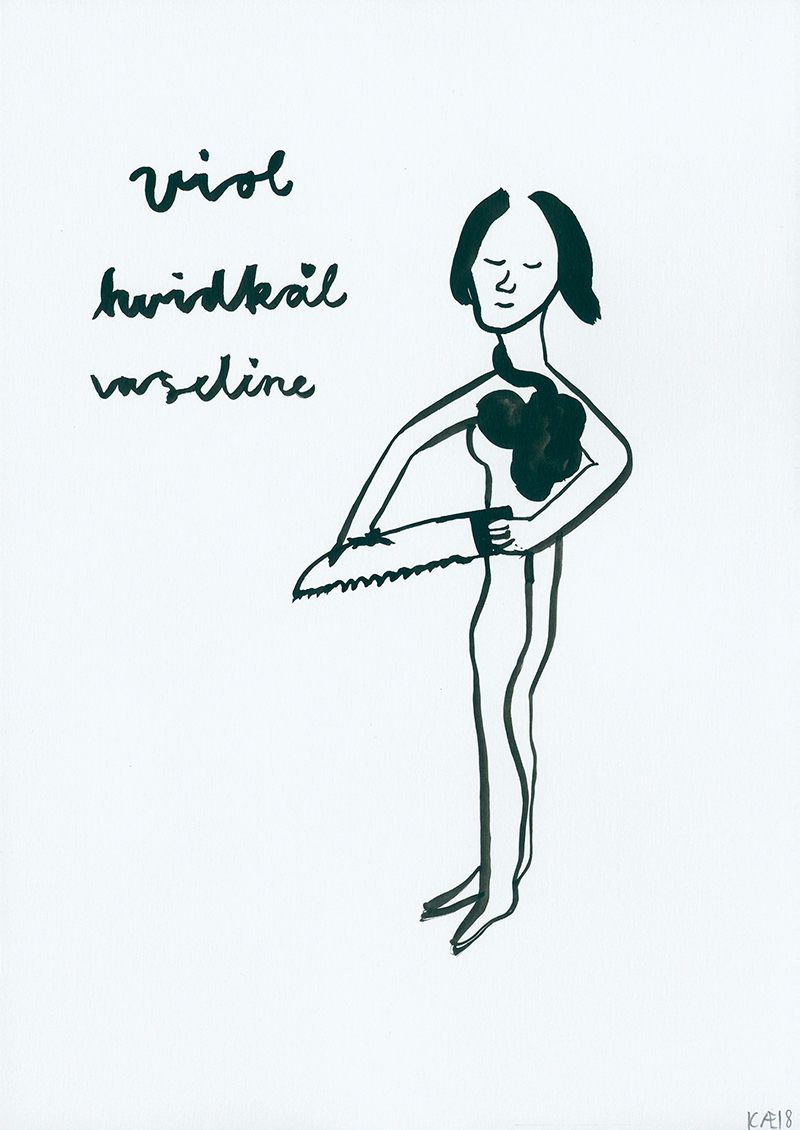 viol
hvidkål
vaseline
KÆ18